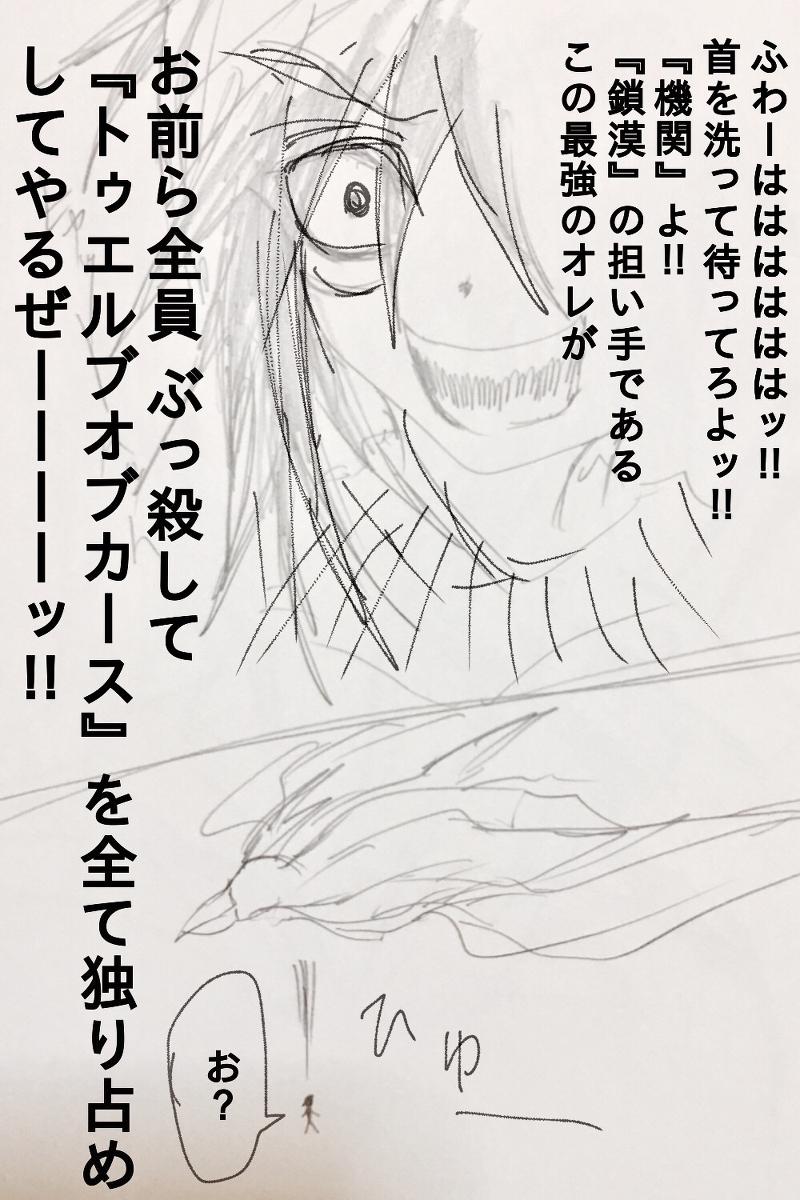 ふわーははははははッ!!
首を洗って待ってろよッ!!
『機関』よ!!
『鎖漠』の担い手である
この最強のオレが
お前ら全員 ぶっ殺して
『トゥエルブオブカース』を全て独り占め
してやるぜーーーーッ!!
お?
ひゅー